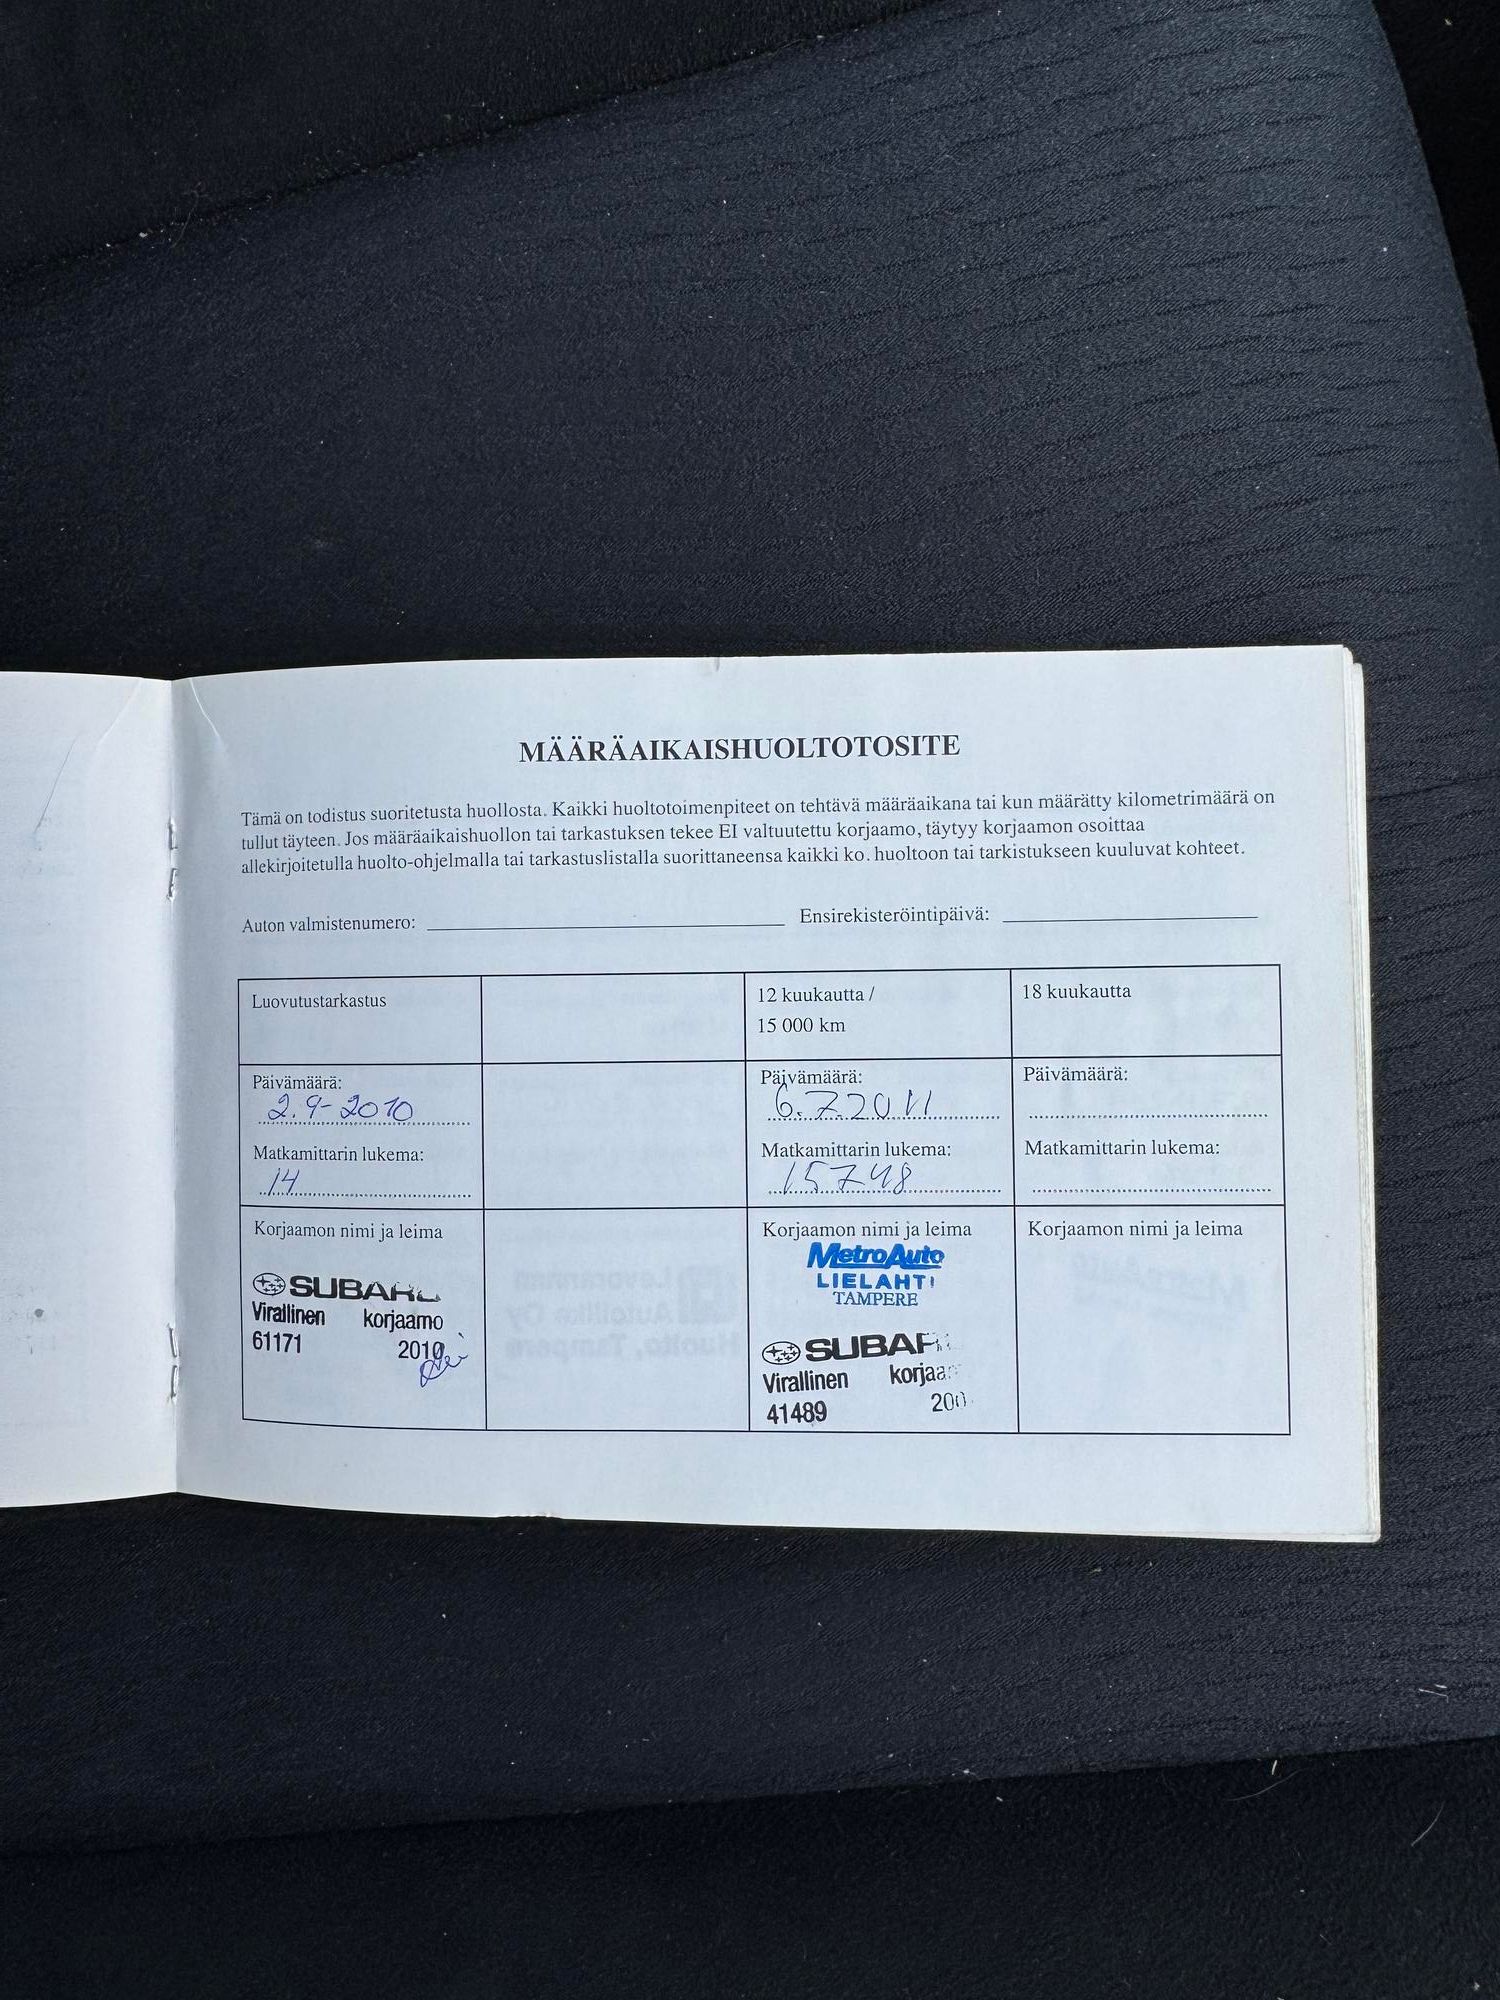 MÄÄRÄAIKAISHUOLTOTOSITE
Tämä on todistus suoritetusta huollosta. Kaikki huoltotoimenpiteet on tehtävä määräaikana tai kun määrätty kilometrimäärä on
tullut täyteen. Jos määräaikaishuollon tai tarkastuksen tekee EI valtuutettu korjaamo, täytyy korjaamon osoittaa
allekirjoitetulla huolto-ohjelmalla tai tarkastuslistalla suorittaneensa kaikki ko. huoltoon tai tarkistukseen kuuluvat kohteet.
Auton valmistenumero: Ensirekisteröintipäivä:
Luovutustarkastus
12 kuukautta /
15 000 km
18 kuukautta
Päivämäärä:
2.9-2010
Matkamittarin lukema:
14
Päivämäärä:
6.7.2011
Matkamittarin lukema:
15748
Päivämäärä:
Matkamittarin lukema:
Korjaamon nimi ja leima
SUBARU
Virallinen korjaamo
61171 2010
Korjaamon nimi ja leima
MetroAuto
LIELAHTI
TAMPERE
SUBAR
Virallinen korjaa
41489
Korjaamon nimi ja leima